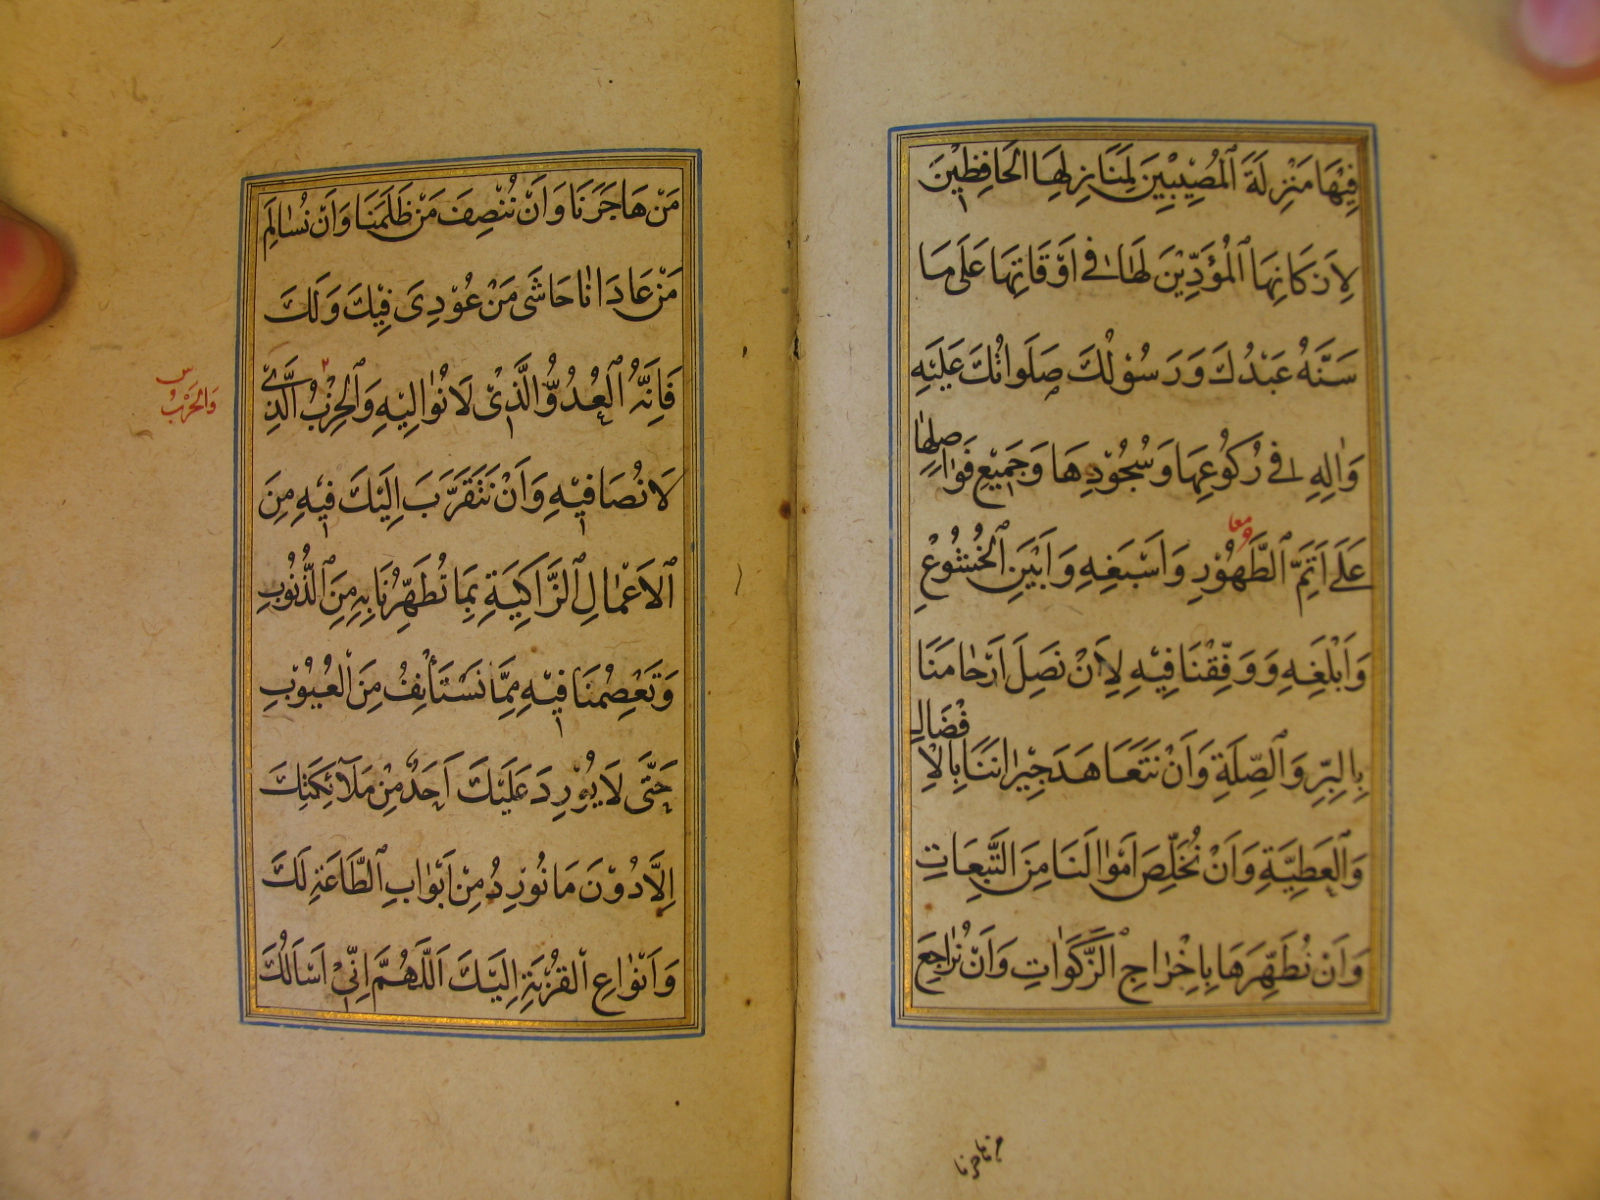 فِيْهَا مَنْزِلَةَ ٱلْمُصِيْبِيْنَ لِمَنَازِلِهَا الْحَافِظِيْنَ
لِاَرْكَانِهَا ٱلْمُؤَدِّيْنَ لَهَا فِي اَوْقَاتِهَا عَلَى مَا
سَنَّهُ عَبْدُكَ وَرَسُوْلُكَ صَلَوَاتُكَ عَلَيْهِ
وَاٰلِهِ فِي رُكُوْعِهَا وَسُجُوْدِهَا وَجَمِيْعِ فَوَاضِلِهَا
عَلَى اَتَمِّ ٱلطَّهُوْرِ وَاَسْبَغِهِ وَاَبْيَنِ ٱلْخُشُوْعِ
معا
وَاَبْلَغِهِ وَوَفِّقْنَا فِيْهِ لِاَنْ نَصِلَ اَرْحَامَنَا
بِالْبِرِّ وَٱلصِّلَةِ وَاَنْ نَتَعَاهَدَ جِيْرَانَنَا بِالْاِفْضَالِ
وَٱلْعَطِيَّةِ وَاَنْ نُخَلِّصَ اَمْوَالَنَا مِنَ التَّبِعَاتِ
وَاَنْ نُطَهِّرَهَا بِاِخْرَاجِ ٱلزَّكَوَاتِ وَاَنْ نُرَاجِعَ
من هاجرنا
مَنْ هَاجَرَنَا وَاَنْ نُنْصِفَ مَنْ ظَلَمَنَا وَاَنْ نُسَالِمَ
مَنْ عَادَانَا حَاشَى مَنْ عُوْدِىَ فِيْكَ وَلَكَ
فَاِنَّهُ ٱلْعَدُوُّ الَّذِىْ لَا نُوَالِيْهِ وَٱلْحِزْبُ الَّذِىْ
وَالحَرْبُ س
لَا نُصَافِيْهِ وَاَنْ نَتَقَرَّبَ اِلَيْكَ فِيْهِ مِنَ
ٱلْاَعْمَالِ ٱلزَّاكِيَةِ بِمَا تُطَهِّرُنَا بِهِ مِنَ ٱلذُّنُوْبِ
وَتَعْصِمُنَا فِيْهِ مِمَّا نَسْتَأْنِفُ مِنَ الْعُيُوْبِ
حَتَّى لَا يُوْرِدَ عَلَيْكَ اَحَدٌ مِنْ مَلَآئِكَتِكَ
اِلَّا دُوْنَ مَا نُوْرِدُ مِنْ اَبْوَابِ ٱلطَّاعَةِ لَكَ
وَاَنْوَاعِ الْقُرْبَةِ اِلَيْكَ اَللّٰهُمَّ اِنِّىْ اَسْاَلُكَ